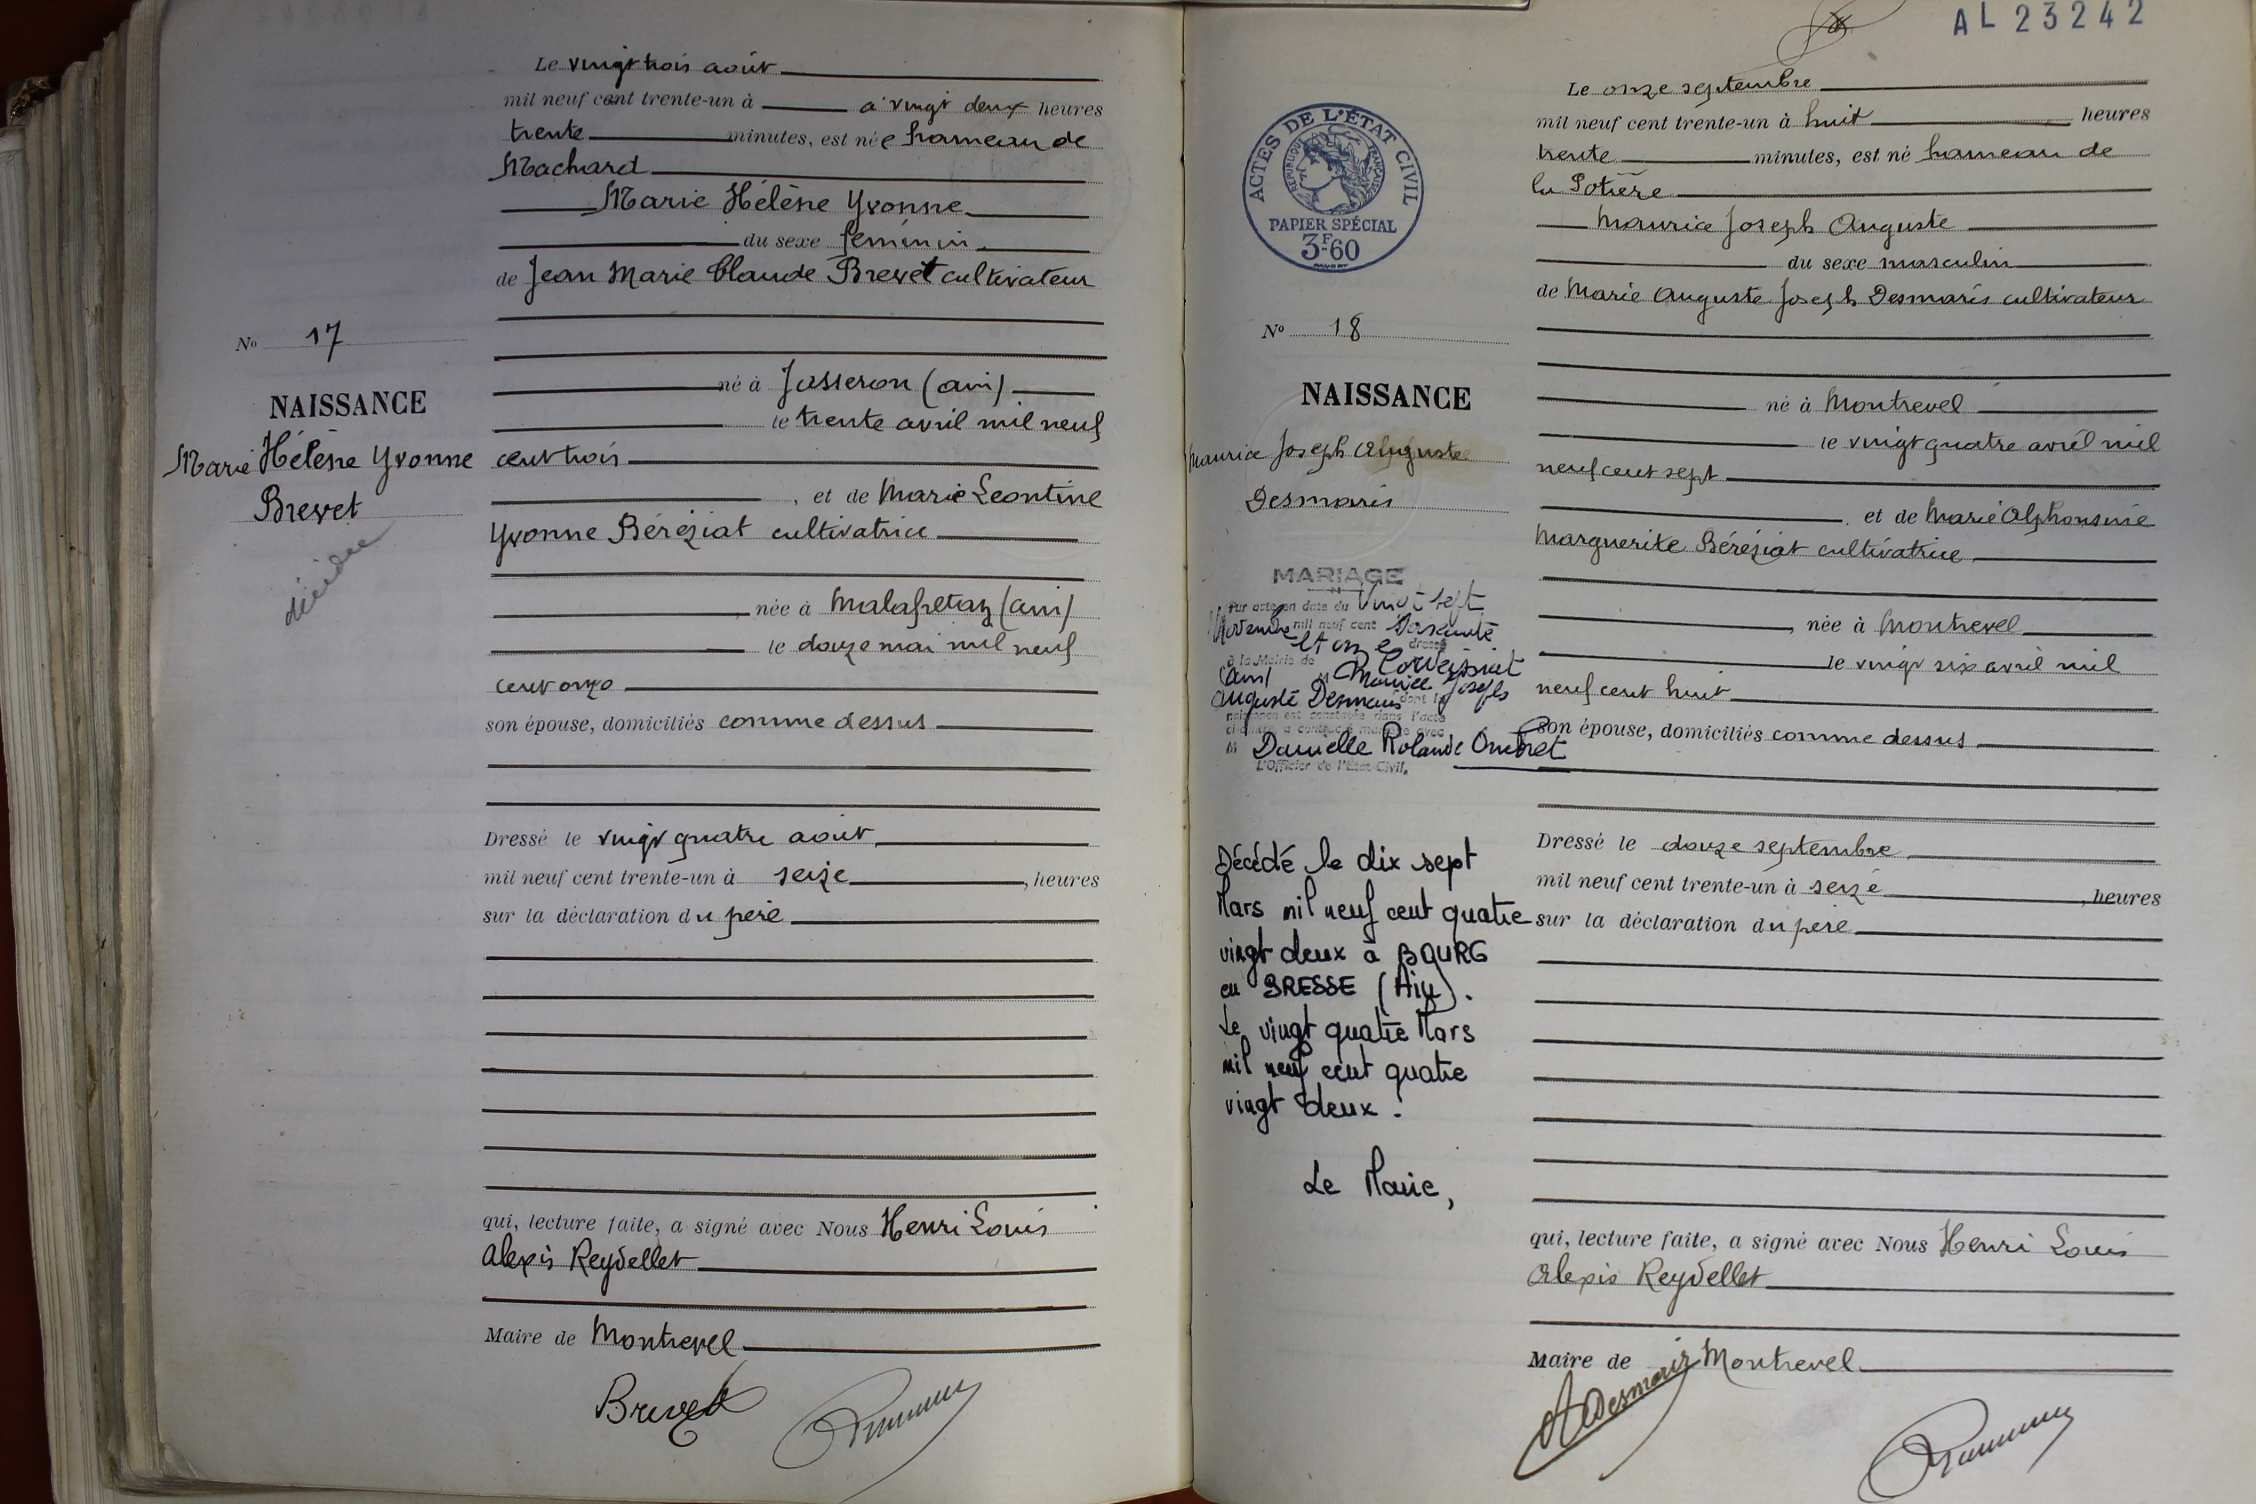 Le vingt trois août
mil neuf cent trente-un à à vingt deux heures
trente minutes, est née hameau de
Machard
Marie Hélène Yvonne
du sexe féminin
de Jean Marie Claude Brevet cultivateur
né à Jasseron (ain)
le trente avril mil neuf
cent trois
, et de Marie Leontine
Yvonne Béréziat cultivatrice
née à Malafretaz (ain)
le douze mai mil neuf
cent onze
son épouse, domiciliés comme dessus
Dressé le vingt quatre août
mil neuf cent trente-un à seize, heures
sur la déclaration du père
qui, lecture faite, a signé avec Nous Henri Louis
Alexis Reydellet
Maire de Montrevel
Brevet
No 17
NAISSANCE
Marie Hélène Yvonne
Brevet
décédée
AL 23242
Le onze septembre
mil neuf cent trente-un à huit heures
trente minutes, est né hameau de
la Potière
Maurice Joseph Auguste
du sexe masculin
de Marie Auguste Joseph Desmaris cultivateur
né à Montrevel
le vingt quatre avril mil
neuf cent sept
et de Marie Alphonsine
Marguerite Béréziat cultivatrice
, née à Montrevel
le vingt six avril mil
neuf cent huit
son épouse, domiciliés comme dessus
Dressé le douze septembre
mil neuf cent trente-un à seize, heures
sur la déclaration du père
qui, lecture faite, a signé avec Nous Henri Louis
Alexis Reydellet
Maire de Montrevel
ADesmaris
ACTES DE L'ÉTAT CIVIL
RÉPUBLIQUE FRANÇAISE
PAPIER SPÉCIAL
3F.60
No 18
NAISSANCE
Maurice Joseph Auguste
Desmaris
MARIAGE
Par acte en date du Vingt sept
Novembre mil neuf cent soixante
et onze dressé
à la Mairie de Corveissiat
(Ain) M Maurice Joseph
Auguste Desmaris dont la
naissance est constatée dans l'acte
ci-contre a contracté mariage avec
M Danielle Rolande Ombret
L'Officier de l'État-Civil,
Décédé le dix sept
Mars mil neuf cent quatre
vingt deux à BOURG
en BRESSE (Ain).
Le vingt quatre Mars
mil neuf cent quatre
vingt deux.
Le Maire,